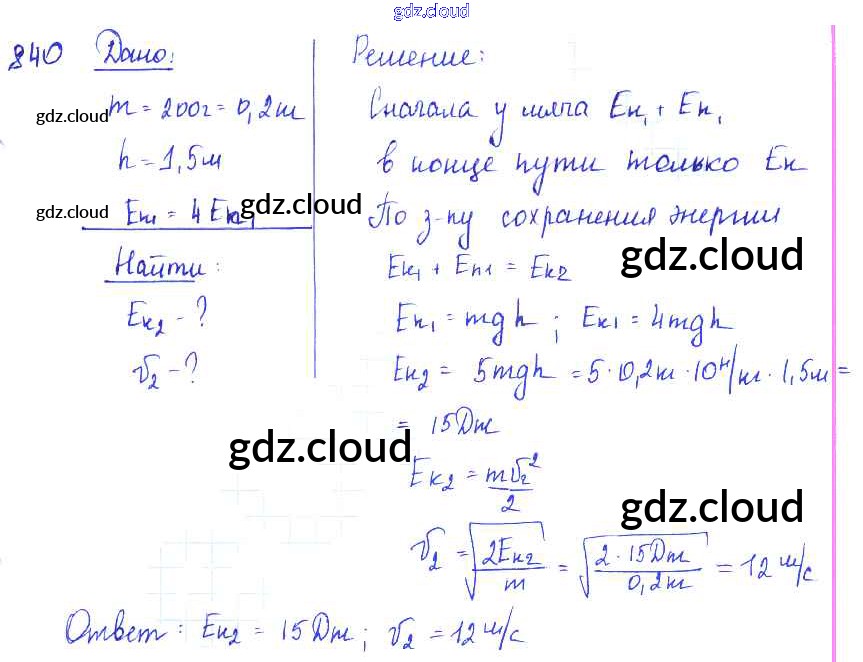 gdz.cloud
840 Дано:
gdz.cloud
m = 200г = 0,2кг
h = 1,5м
gdz.cloud
Eк1 = 4 Eп1
gdz.cloud
Найти:
Eк2 - ?
v2 - ?
Решение:
Сначала у мяча Eк1 + Eп1
в конце пути только Eк
По з-ну сохранения энергии
gdz.cloud
Eк1 + Eп1 = Eк2
Eп1 = mgh ; Eк1 = 4mgh
Eк2 = 5mgh = 5·0,2кг·10 Н/кг·1,5м =
= 15Дж
gdz.cloud
Eк2 = mv2²/2
gdz.cloud
v2 = √(2Eк2/m) = √(2·15Дж/0,2кг) = 12 м/с
Ответ: Eк2 = 15Дж; v2 = 12 м/с